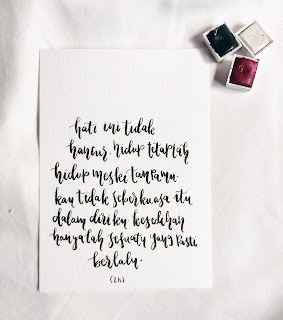 hati ini tidak
hancur. hidup tetaplah
hidup meski tanpamu.
kau tidak seberkuasa itu
dalam diriku kesedihan
hanyalah sesuatu yang pasti
berlalu.
(zh)